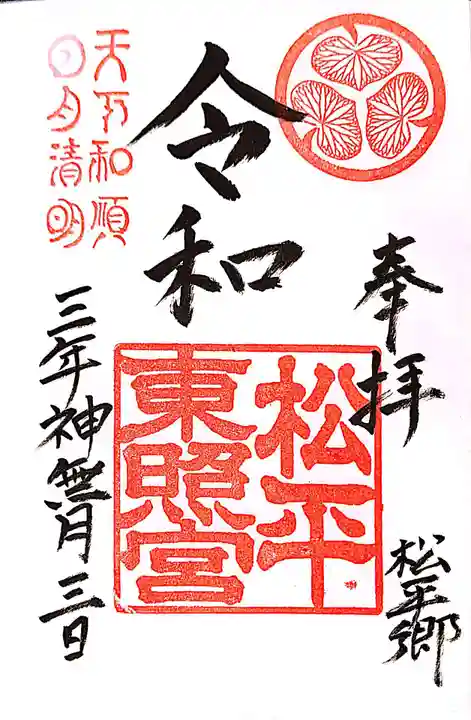 奉拝
松平郷
松平
東照宮
令和
三年神無月三日
天下和順
日月清明